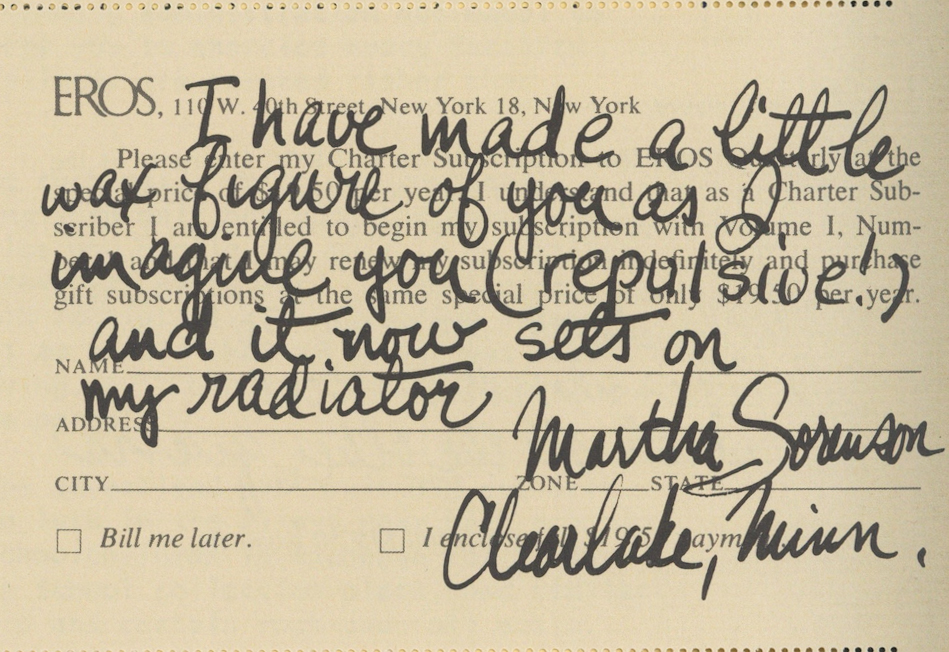 EROS, 110 W. 40th Street, New York 18, New York
Please enter my Charter Subscription to EROS Quarterly at the
special price of $19.50 per year. I understand that as a Charter Sub-
scriber I am entitled to begin my subscription with Volume I, Num-
and that I may renew my subscription indefinitely and purchase
gift subscriptions at the same special price of only $19.50 per year.
NAME
ADDRESS
CITY ZONE STATE
Bill me later. I enclose $19.50
I have made a little
wax figure of you as I
imagine you (repulsive!)
and it now sets on
my radiator
Martha Sorenson
Clearlake, Minn.